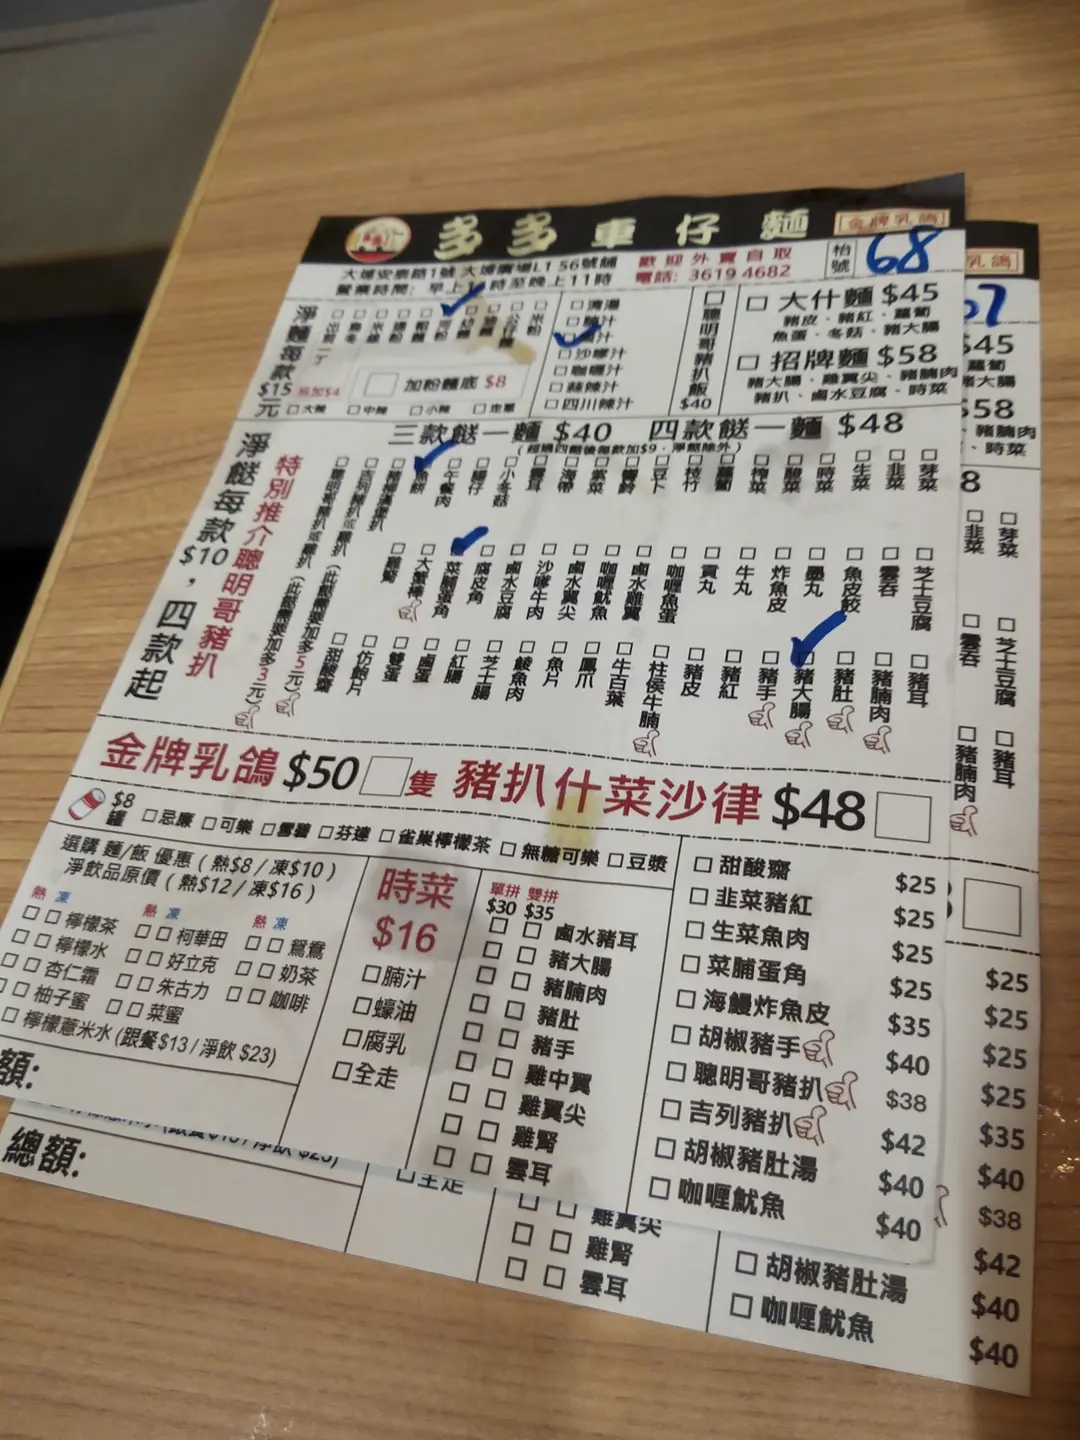 多多車仔麵
金牌乳鴿
大埔安慈路1號 大埔廣場L1 56號舖
歡迎外賣自取
營業時間: 早上1 時至晚上11時
電話: 3619 4682
枱號 68
淨麵每款 $15元
出前一丁
河粉
公仔麵
米粉
加粉麵底 $8
大辣
中辣
小辣
走蔥
清湯
腩汁
沙嗲汁
咖喱汁
蒜辣汁
四川辣汁
聰明哥豬扒飯 $40
大什麵 $45
豬皮、豬紅、蘿蔔
魚蛋、冬菇、豬大腸
招牌麵 $58
豬大腸、雞翼尖、豬腩肉
豬扒、鹵水豆腐、時菜
三款餸一麵 $40 四款餸一麵 $48
(超過四餸後每款加$9，淨餸除外)
淨餸每款$10，四款起
特別推介聰明哥豬扒
聰明哥豬扒或雞扒 (此餸需要加多3元)
吉列豬扒或雞扒 (此餸需要加多5元)
魚餅
午餐肉
腸仔
小冬菇
雲耳
海帶
紫菜
響鈴
豆卜
枝竹
蘿蔔
榨菜
酸菜
時菜
生菜
韭菜
芽菜
雞腎
大蟹棒
菜脯蛋角
腐皮角
鹵水豆腐
沙嗲牛肉
鹵水翼尖
咖喱魷魚
鹵水雞翼
咖喱魚蛋
貢丸
牛丸
炸魚皮
墨丸
魚皮餃
雲吞
芝士豆腐
甜酸齋
仿鮑片
雙蛋
鹵蛋
紅腸
芝士腸
鯪魚肉
魚片
鳳爪
牛百葉
柱侯牛腩
豬皮
豬紅
豬手
豬大腸
豬肚
豬腩肉
豬耳
金牌乳鴿 $50 隻 豬扒什菜沙律 $48
$8罐 忌廉 可樂 雪碧 芬達 雀巢檸檬茶 無糖可樂 豆漿
選購 麵/飯 優惠 (熱$8 / 凍$10)
淨飲品原價 (熱$12 / 凍$16)
熱 凍 熱 凍 熱 凍
檸檬茶 柯華田 鴛鴦
檸檬水 好立克 奶茶
杏仁霜 朱古力 咖啡
柚子蜜 菜蜜
檸檬薏米水 (跟餐$13 / 淨飲 $23)
額:
時菜
$16
腩汁
蠔油
腐乳
全走
單拼 雙拼
$30 $35
鹵水豬耳
豬大腸
豬腩肉
豬肚
豬手
雞中翼
雞翼尖
雞腎
雲耳
甜酸齋 $25
韭菜豬紅 $25
生菜魚肉 $25
菜脯蛋角 $25
海鰻炸魚皮 $35
胡椒豬手 $40
聰明哥豬扒 $38
吉列豬扒 $42
胡椒豬肚湯 $40
咖喱魷魚 $40
乳鴿
$45
蘿蔔
豬大腸
$58
、豬腩肉
、時菜
8
韭菜
芽菜
雲吞
芝士豆腐
豬腩肉
豬耳
$25
$25
$25
$25
$35
$40
$38
$42
$40
$40
總額:
全走
雞翼尖
雞腎
雲耳
胡椒豬肚湯
咖喱魷魚